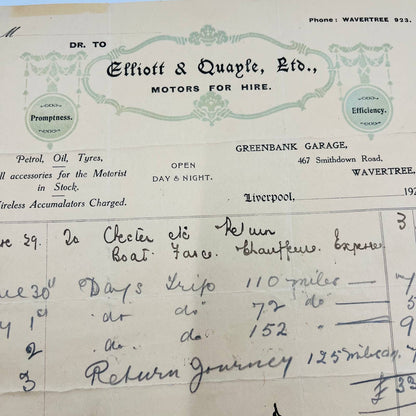 Phone: WAVERTREE 923.
M
DR. TO
Elliott & Quayle, Ltd.,
MOTORS FOR HIRE.
Promptness.
Efficiency.
GREENBANK GARAGE,
467 Smithdown Road,
WAVERTREE,
Petrol, Oil, Tyres,
ll accessories for the Motorist
in Stock.
ireless Accumalators Charged.
OPEN
DAY & NIGHT.
Liverpool, 192
29. To Chester etc Return 3
Boat Fares. Chauffeurs Expense
30" Days Trip 110 miles — 7
1st do do 72 do — 5
2 do. do 152 " — 9
3 Return Journey 125 miles 7
£ 3